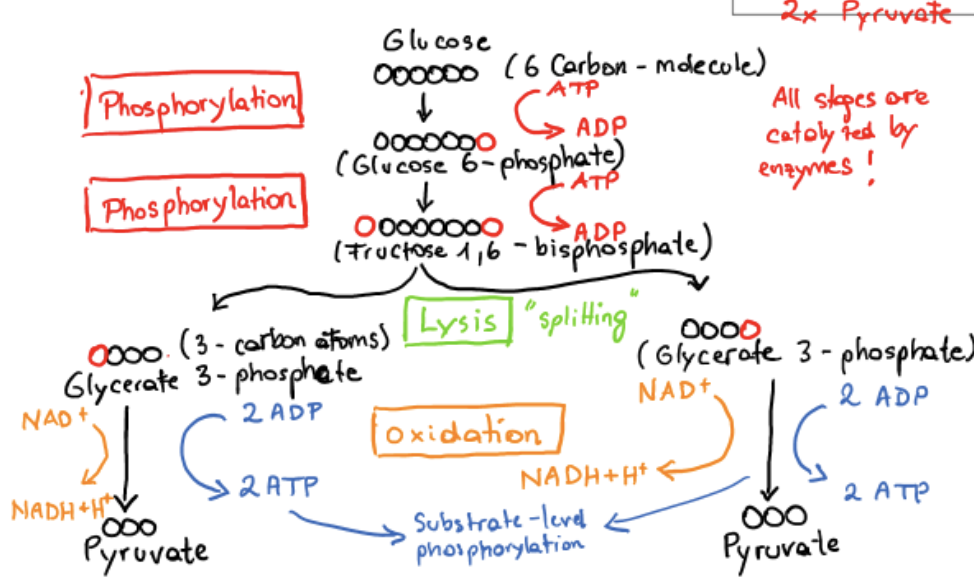 2x Pyruvate
Glucose
(6 Carbon - molecule)
Phosphorylation
ATP
ADP
All stages are
catalyzed by
enzymes!
(Glucose 6-phosphate)
Phosphorylation
ATP
ADP
(Fructose 1,6 - bisphosphate)
Lysis "splitting"
(3 - carbon atoms)
Glycerate 3-phosphate
(Glycerate 3 - phosphate)
NAD+
2 ADP
Oxidation
NAD+
2 ADP
NADH+H+
2 ATP
NADH+H+
2 ATP
Substrate-level
phosphorylation
Pyruvate
Pyruvate